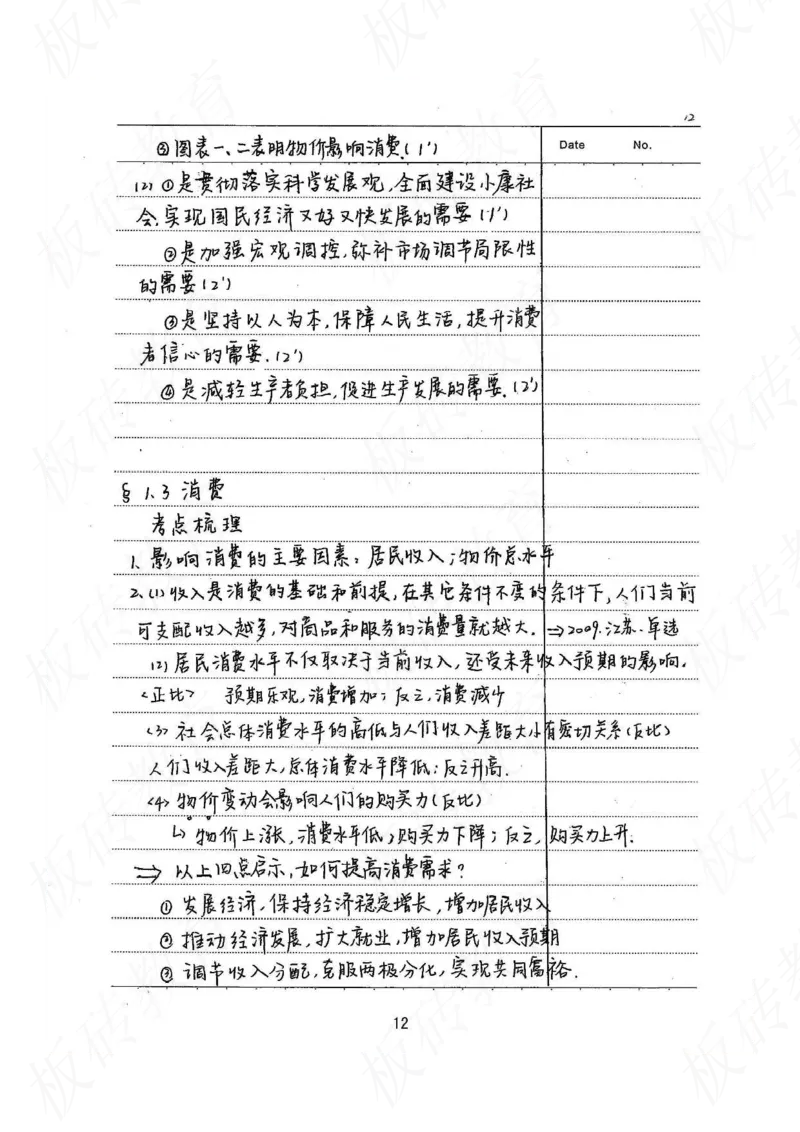 12
Date No.
③图表一、二表明物价影响消费.(1')
(2)①是贯彻落实科学发展观,全面建设小康社
会,实现国民经济又好又快发展的需要(1')
②是加强宏观调控,弥补市场调节局限性
的需要(2')
③是坚持以人为本,保障人民生活,提升消费
者信心的需要.(2')
④是减轻生产者负担,促进生产发展的需要.(2')
§1.3 消费
考点梳理
1、影响消费的主要因素:居民收入;物价总水平
2、(1)收入是消费的基础和前提,在其它条件不变的条件下,人们当前
可支配收入越多,对商品和服务的消费量就越大. ⇒2009.江苏.单选
(2)居民消费水平不仅取决于当前收入,还受未来收入预期的影响.
<正比> 预期乐观,消费增加;反之,消费减少
<3>社会总体消费水平的高低与人们收入差距大小有密切关系(反比)
人们收入差距大,总体消费水平降低;反之升高.
<4>物价变动会影响人们的购买力(反比)
↳物价上涨,消费水平低,购买力下降;反之,购买力上升.
⇒以上四点启示,如何提高消费需求?
①发展经济,保持经济稳定增长,增加居民收入
②推动经济发展,扩大就业,增加居民收入预期
③调节收入分配,克服两极分化,实现共同富裕.
12
板砖教育